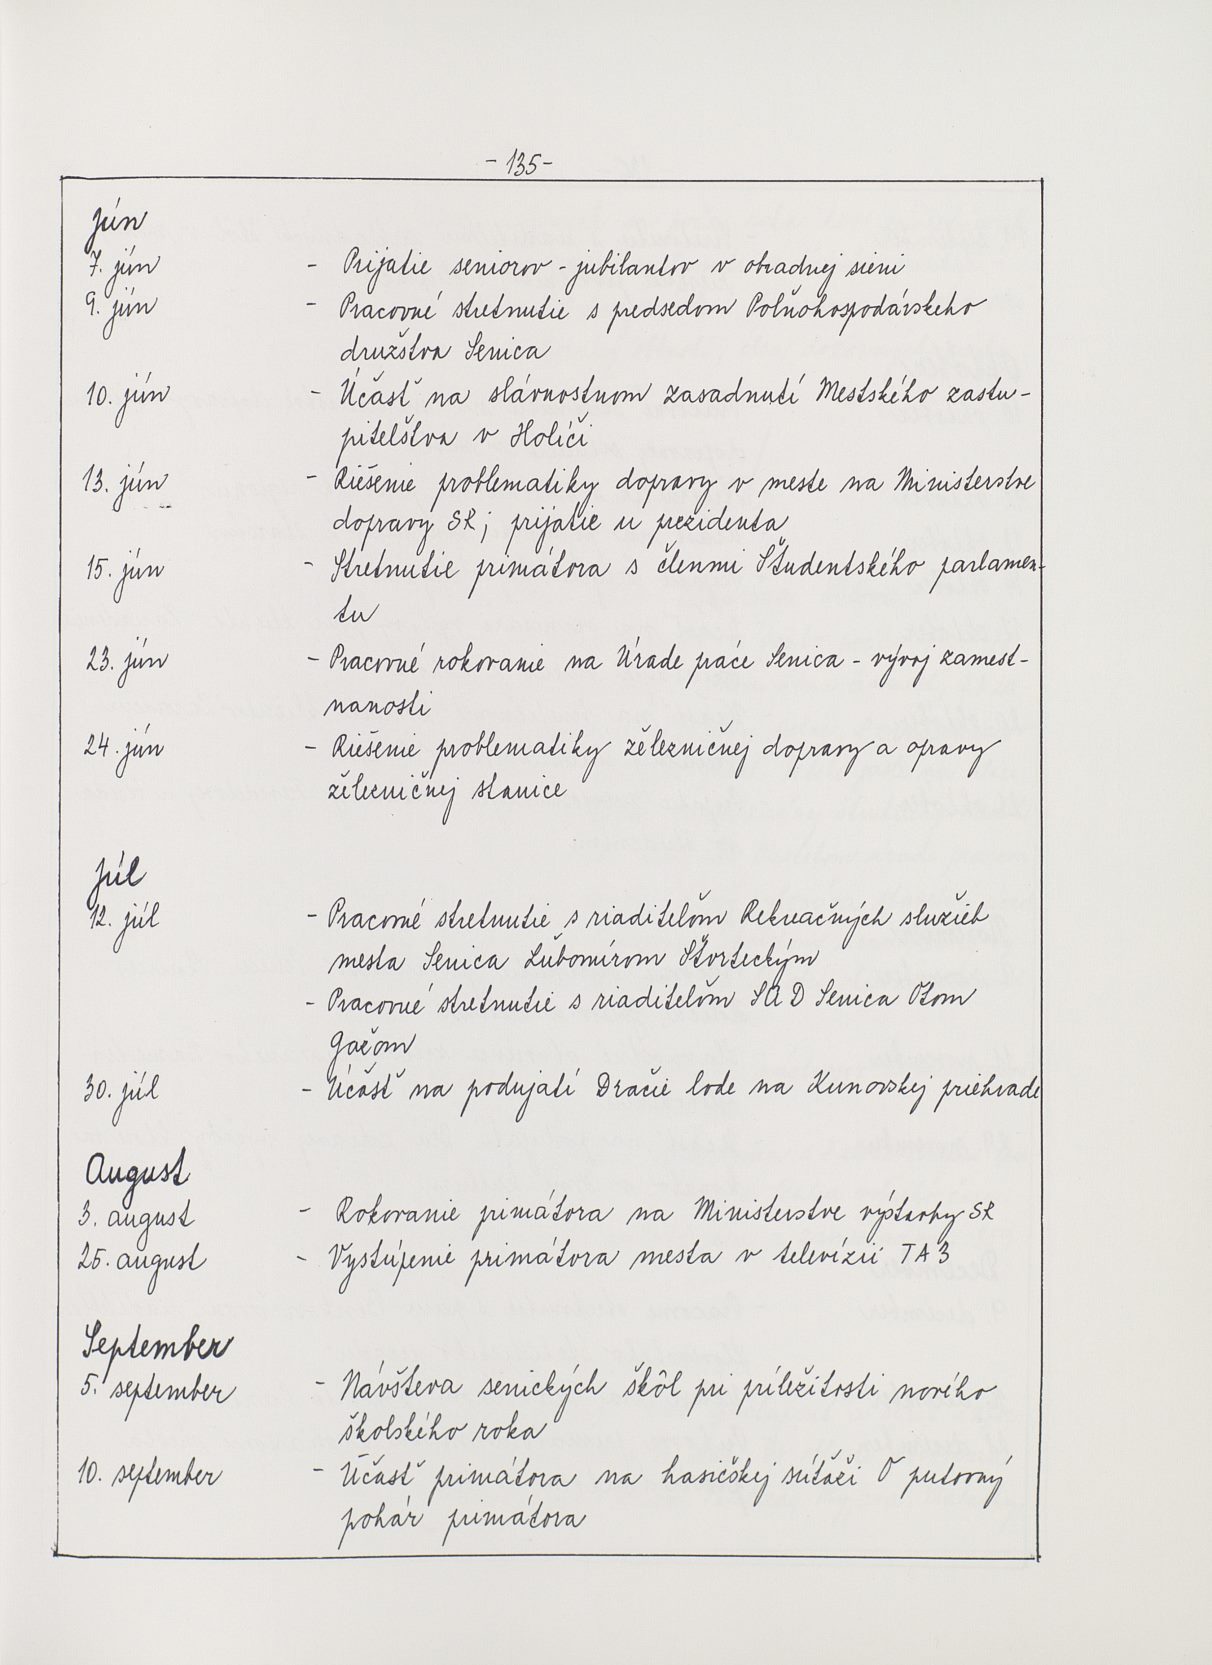 - 135 -
Jún
7. jún - Prijatie seniorov - jubilantov v obradnej sieni
9. jún - Pracovné stretnutie s predsedom Poľnohospodárskeho
družstva Senica
10. jún - Účasť na slávnostnom zasadnutí Mestského zastu-
piteľstva v Holíči
13. jún - Riešenie problematiky dopravy v meste na Ministerstve
dopravy SR; prijatie u prezidenta
15. jún - Stretnutie primátora s členmi Študentského parlamen-
tu
23. jún - Pracovné rokovanie na Úrade práce Senica - vývoj zamest-
nanosti
24. jún - Riešenie problematiky železničnej dopravy a opravy
železničnej stanice
Júl
12. júl - Pracovné stretnutie s riaditeľom Rekreačných služieb
mesta Senica Ľubomírom Štvrteckým
- Pracovné stretnutie s riaditeľom SAD Senica Otom
Gažom
30. júl - Účasť na podujatí Dračie lode na Kunovskej priehrade
August
3. august - Rokovanie primátora na Ministerstve výstavby SR
25. august - Vystúpenie primátora mesta v televízii TA 3
September
5. september - Návšteva senických škôl pri príležitosti nového
školského roka
10. september - Účasť primátora na hasičskej súťaži O putovný
pohár primátora